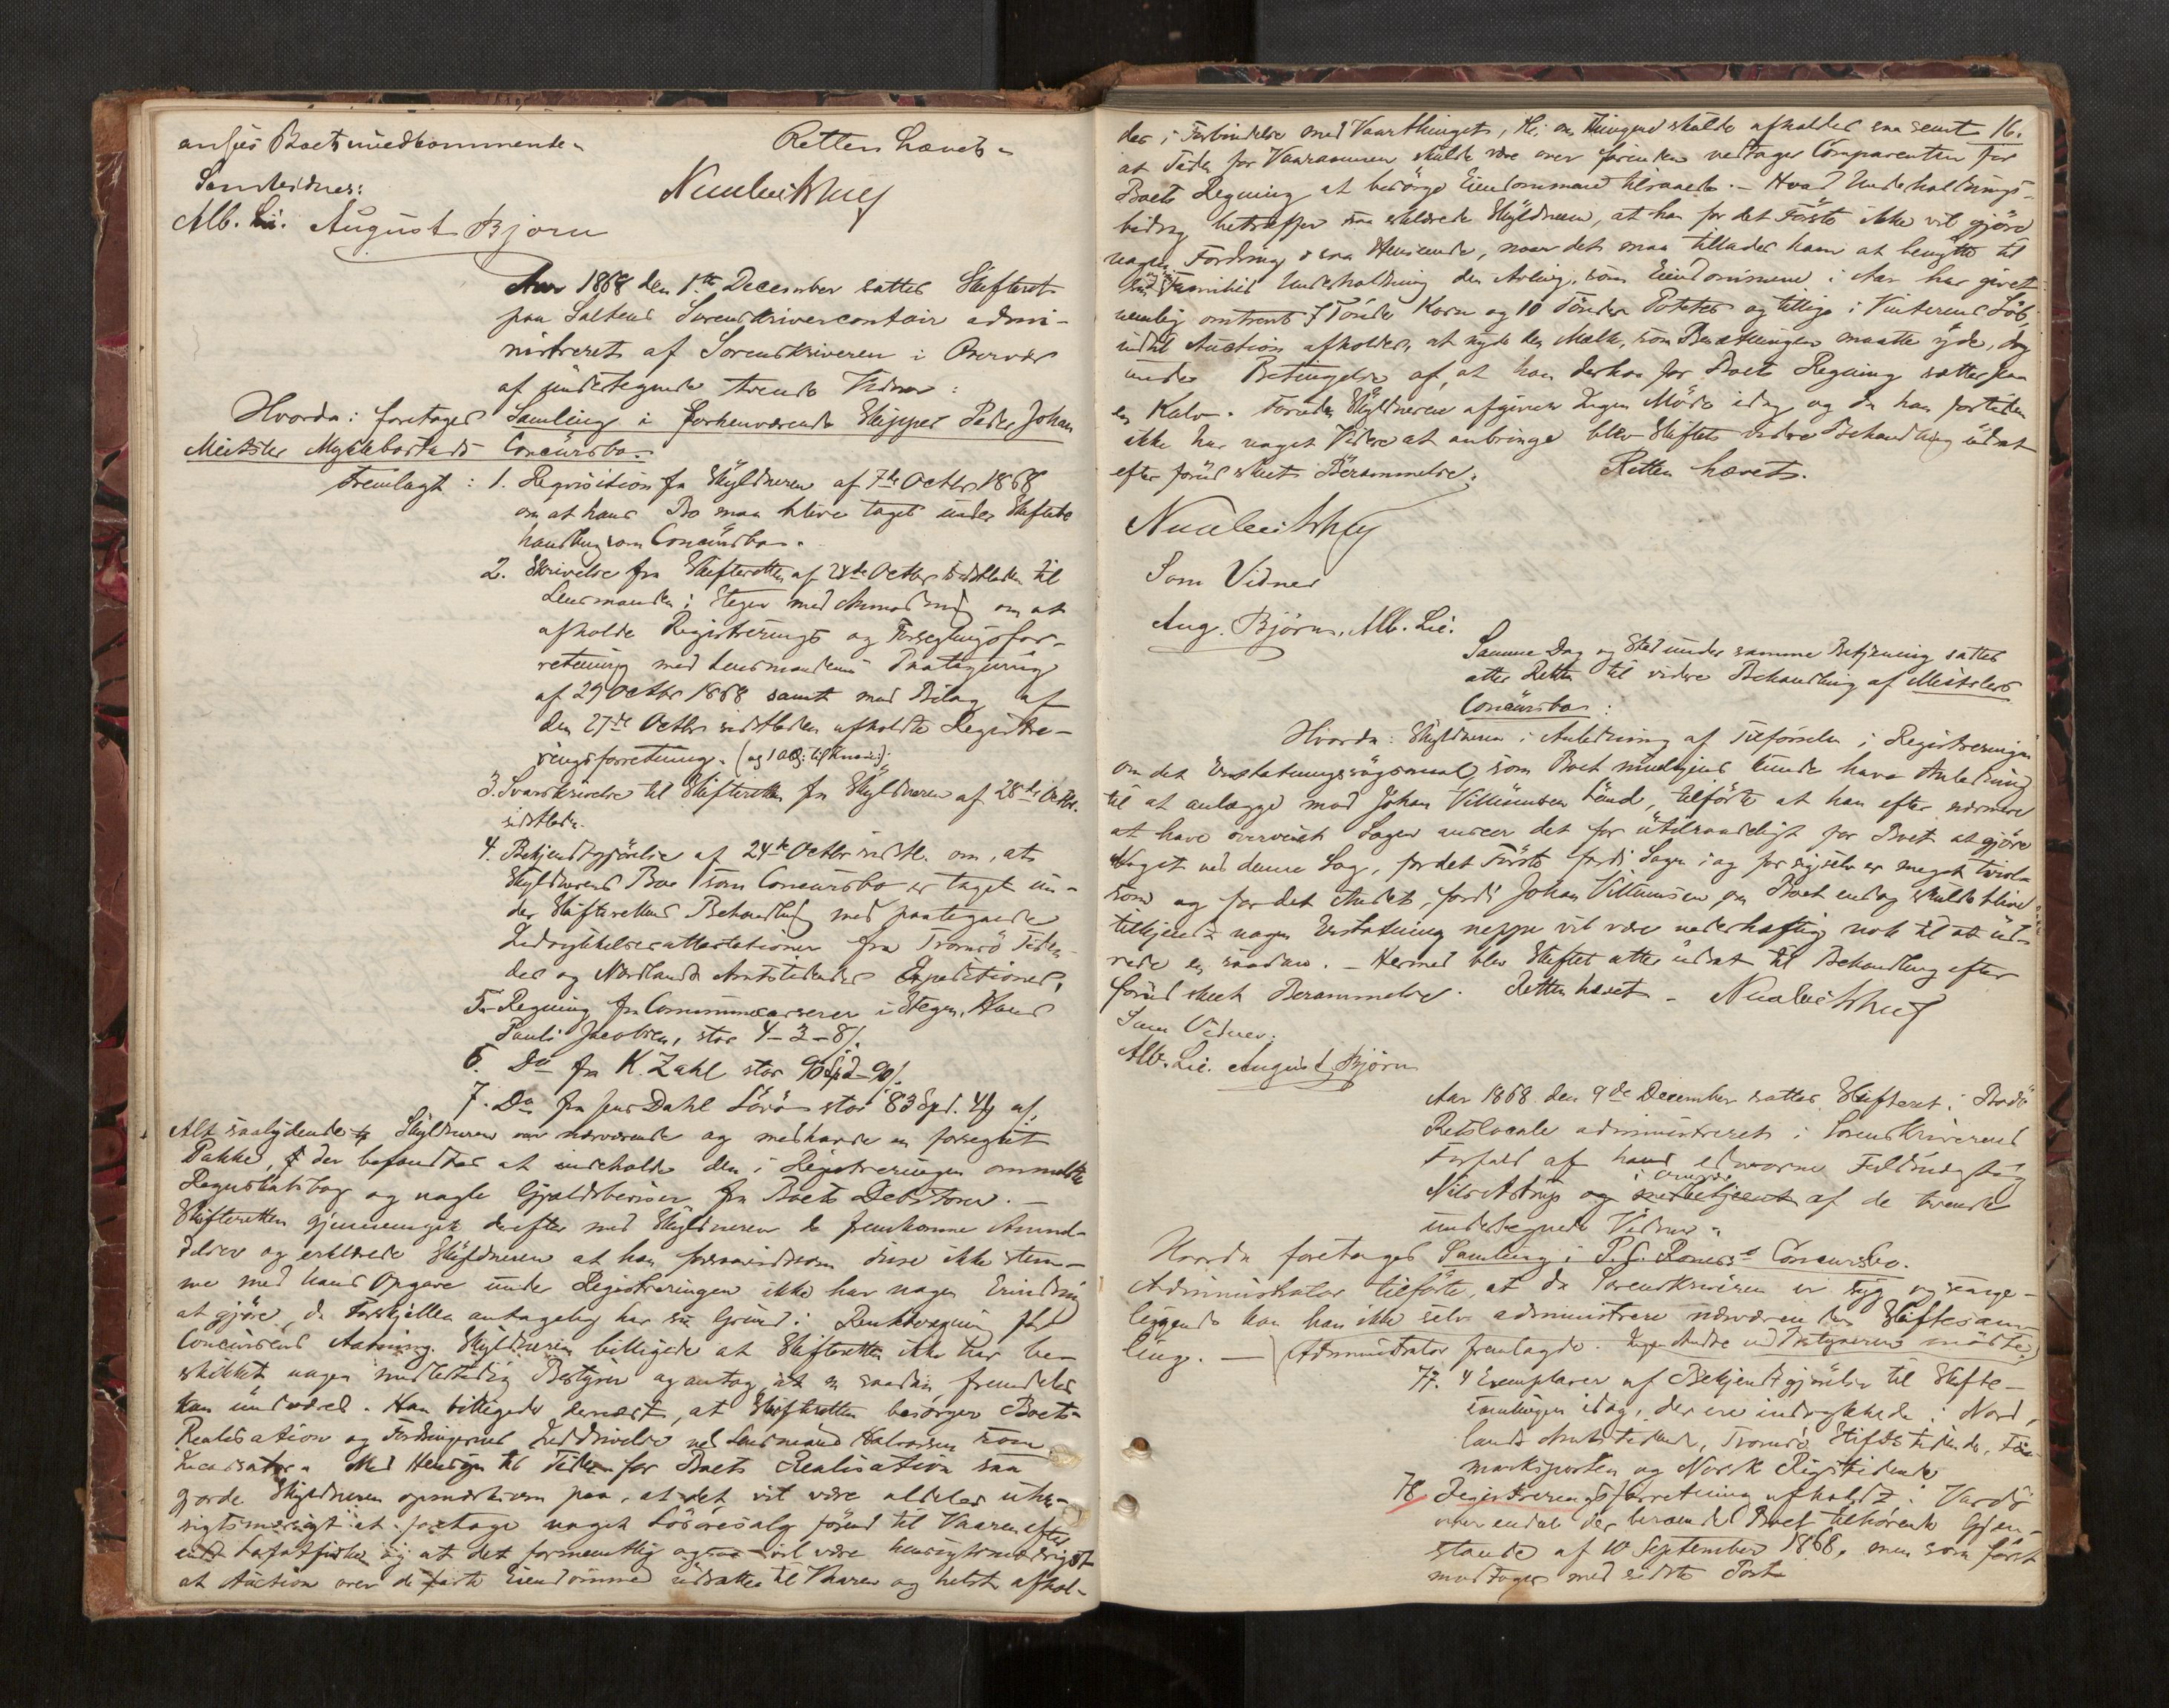 anses Boets uvedkommende. Retten hævet.
Som Vidner:
Alb. Lie. August Bjørn
Aar 1868 den 1ste December sattes Skifteret
paa Saltens Sorenskrivercontoir admi-
nistreret af Sorenskriveren i Overvær
af undertegnede tvende Vidner:
Hvorda: foretages Samling i forhenværende Skipper Peder Johan
Meitsler Myklebostads Concursbo.
Fremlagt: 1. Reqvisition fra Skyldneren af 7de Octbr 1868
om at hans Bo maa blive taget under Skiftebe
handling som Concursbo.
2. Skrivelse fra Skifteretten af 24de Octbr sidstleden til
Lensmanden i Stegen med Anmodning om at
afholde Registrerings og Forseglingsfor-
retning med Lensmandens Paategning
af 29 Octbr 1868 samt med Bilag af
den 27de Octbr sidstleden afholdte Registre-
ringsforretning.
3. Svarskrivelse til Skifteretten fra Skyldneren af 28de Octbr.
sidstleden.
4. Bekjendtgjørelse af 24de Octbr sidstl. om, at
Skyldnerens Boe som Concursbo er taget un-
der Skifterettens Behandling med paategnede
Indrykkelsesattestationer fra Tromsø Tiden-
der og Nordlands Amtstidendes Expeditioner.
5. Regning fra Communecasserer i Stegen, Hans
Pauli Jacobsen, stor 4-3-8 /.
6. Do fra K. Zahl stor 90 Spd - 90 /.
7. Do fra Jens Dahl Løvø stor 83 Spd. 4 /.
Alt saalydende Skyldneren var nærværende og medhavde en forseglet
Pakke, der befandtes at indeholde den i Registreringen ommeldte
Regnskabsbog og nogle Gjældsbeviser fra Boets Debitorer.—
Skifteretten gjennemgik derefter med Skyldneren de fremkomne Anmel-
delser og erklærede Skyldneren at han, forsaavidtsom disse ikke stem-
me med hans Opgave under Registreringen ikke har nogen Erindring
at gjøre, da Forskjellen antagelig har sin Grund i Renteberegning
Concursens Aabning. Skyldneren billigede at Skifteretten ikke har be-
skikket nogen midlertidig Bestyrer og antog, at en saadan fremdeles
kan undværes. Han billigede dernæst, at Skifteretten besørger Boets
Realisation og Fordringernes Inddrivelse ved Lensmand Halvorsen som
Incassator. Med Hensyn til Tiden for Boets Realisation saa
gjorde Skyldneren opmærksom paa, at det vil være aldeles uhen-
sigtsmæssigt at foretage noget Løsøresalg førend til Vaaren efter
endt Lofotfiske og at det formentlig ogsaa vil være hensigtsmæssigst
at Auction over de faste Eiendomme udsættes til Vaaren og helst afhol-
des i Forbindelse med Vaarthinget, thi om Thinget skulde afholdes saa sent 16.
at Tiden for Vaaraannen skulde være over forinden vedtager Comparenten for
Boets Regning at besørge Eiendommene tilsaaede. — Hvad Underholdnings-
bidrag betræffer saa erklærede Skyldneren, at han for det Første ikke vil gjøre
nogen Fordring i saa Henseende, naar det maa tillades ham at benytte til
sin Families Underholdning den Avling, som Eiendommene i Aar har givet
nemlig omtrent 7 Tønder Korn og 10 Tønder Poteter og tillige i Vinterens Løb,
indtil Auction afholdes, at nyde den Melk, som Besætningen maatte yde, dog
under Betingelse af, at han derhos for Boets Regning sætter paa
en Kalv. Foruden Skyldneren afgiver Ingen Møde idag og da han fortiden
ikke har noget Videre at anbringe blev Skiftets videre Behandling udsat
efter forud skeet Berammelse. Retten hævet.
Som Vidner
Aug. Bjørn, Alb. Lie.
Samme Dag og Sted under samme Betjening sattes
atter Retten til videre Behandling af Meitslers
Concursbo:
Hvorda: Skyldneren i Anledning af Tilførselen i Registreringen
om det Erstatningssøgsmaal, som Boet muligens kunde have Anledning
til at anlægge mod Johan Villumsen Lund, tilførte at han efter nærmere
at have overveiet Sagen anseer det for utilraadeligt for Boet at gjøre
Noget ved denne Sag, for det Første fordi Sagen i og for sig selv er meget tvivl-
som og for det Andet, fordi Johan Villumsen, om Boet endog skulde blive
tilkjendt nogen Erstatning neppe vil være vederhæftig nok til at ud-
rede en saadan. — Hermed blev Skiftet atter udsat til Behandling efter
forud skeet Berammelse. Retten hævet.
Som Vidner:
Alb. Lie. August Bjørn
Aar 1868 den 9de December sattes Skifteret i Bodø
Retslocale administreret i Sorenskriverens
Forfald af hans edsvorne Fuldmægtig
Nils Astrup og i Overvær af de tvende
undertegnede Vidner.
Hvorda foretages Samling i P. C. Roness's Concursbo.
Administrator tilførte, at da Sorenskriveren er syg og senge-
liggende kan han ikke selv administrere nærværende Skiftesam-
ling. — Administrator fremlagde. Ingen Andre end Bestyreren mødte.
77. 4 Exemplarer af Bekjendtgjørelse til Skifte-
samlingen idag, der ere indrykkede i Nord-
lands Amtstidende, Tromsø Stiftstidende, Fin-
marksposten og Norsk Rigstidende
78 Registreringsforretning afholdt i Vardø
over endel der beroende Boet tilhørende Gjen-
stande af 10 September 1868, men som først
modtoges med sidste Post